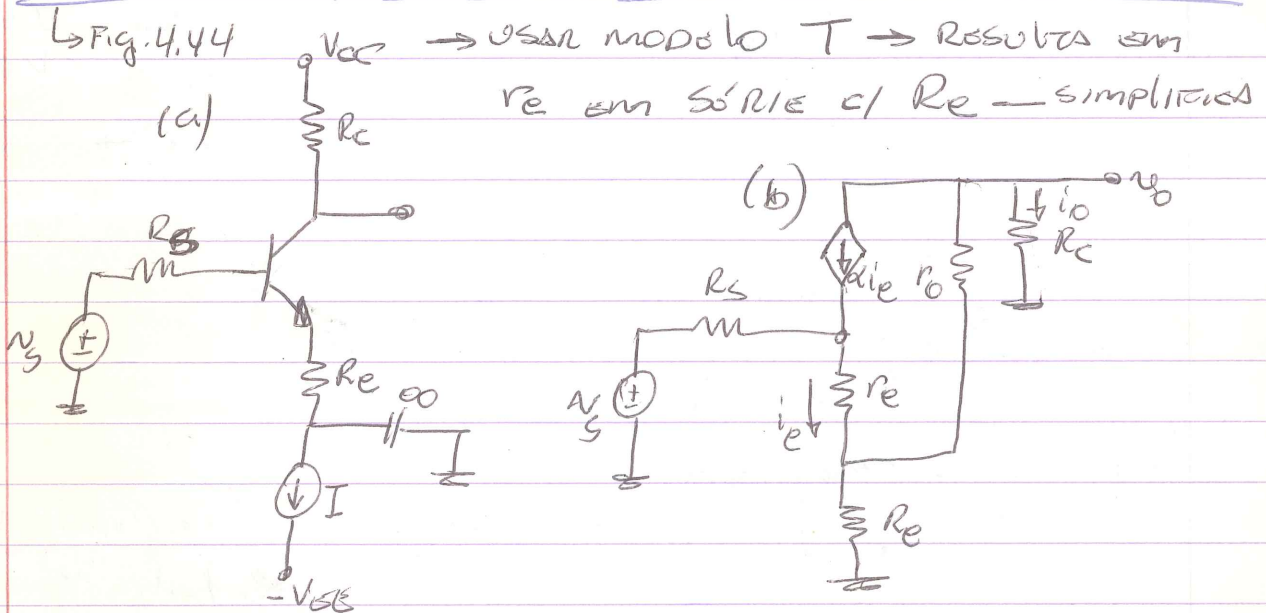 ↳ Fig. 4.44
→ USAR MODELO T → RESULTA EM
re EM SÉRIE c/ Re — SIMPLIFICA
(a)
Vcc
Rc
Rs
vs
Re
∞
I
-VEE
(b)
vo
io
Rc
αie
ro
Rs
vs
re
ie
Re